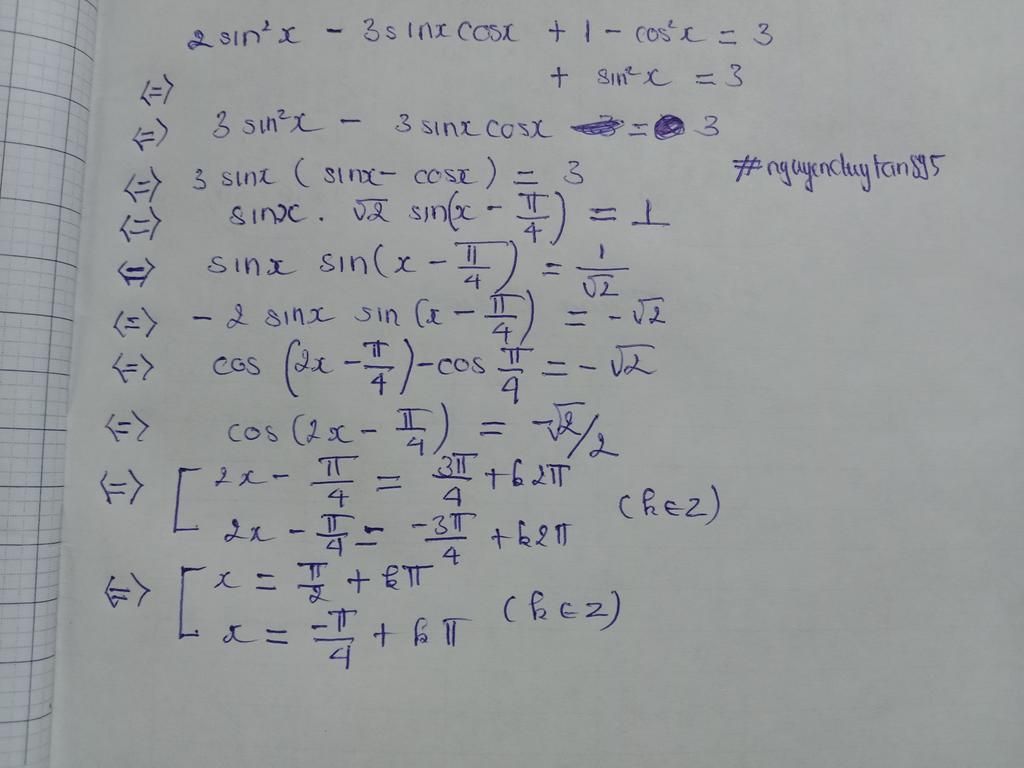 2 sin²x - 3 sinx cosx + 1 - cos²x = 3
<=> + sin²x = 3
<=> 3 sin²x - 3 sinx cosx = 3
<=> 3 sinx (sinx - cosx) = 3
#nguyenduytan895
<=> sinx . √2 sin(x - π/4) = 1
<=> sinx sin(x - π/4) = 1/√2
<=> - 2 sinx sin(x - π/4) = -√2
<=> cos(2x - π/4) - cos π/4 = -√2
<=> cos(2x - π/4) = -√2/2
<=> [ 2x - π/4 = 3π/4 + k2π
2x - π/4 = -3π/4 + k2π (k ∈ Z)
<=> [ x = π/2 + kπ
x = -π/4 + kπ (k ∈ Z)